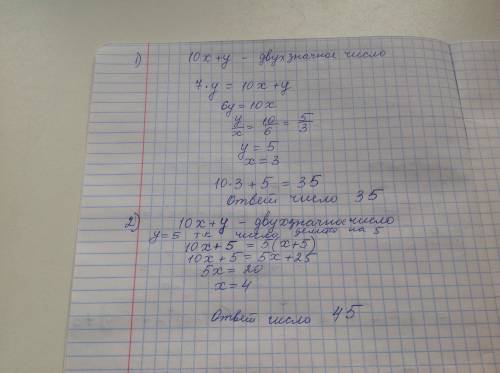 1) 10x+y - двухзначное число
7·y = 10x+y
6y = 10x
y/x = 10/6 = 5/3
y = 5
x = 3
10·3 + 5 = 35
Ответ число 35
2) 10x+y - двухзначное число
y=5 т.к число делится на 5
10x+5 = 5(x+5)
10x+5 = 5x+25
5x = 20
x = 4
Ответ число 45